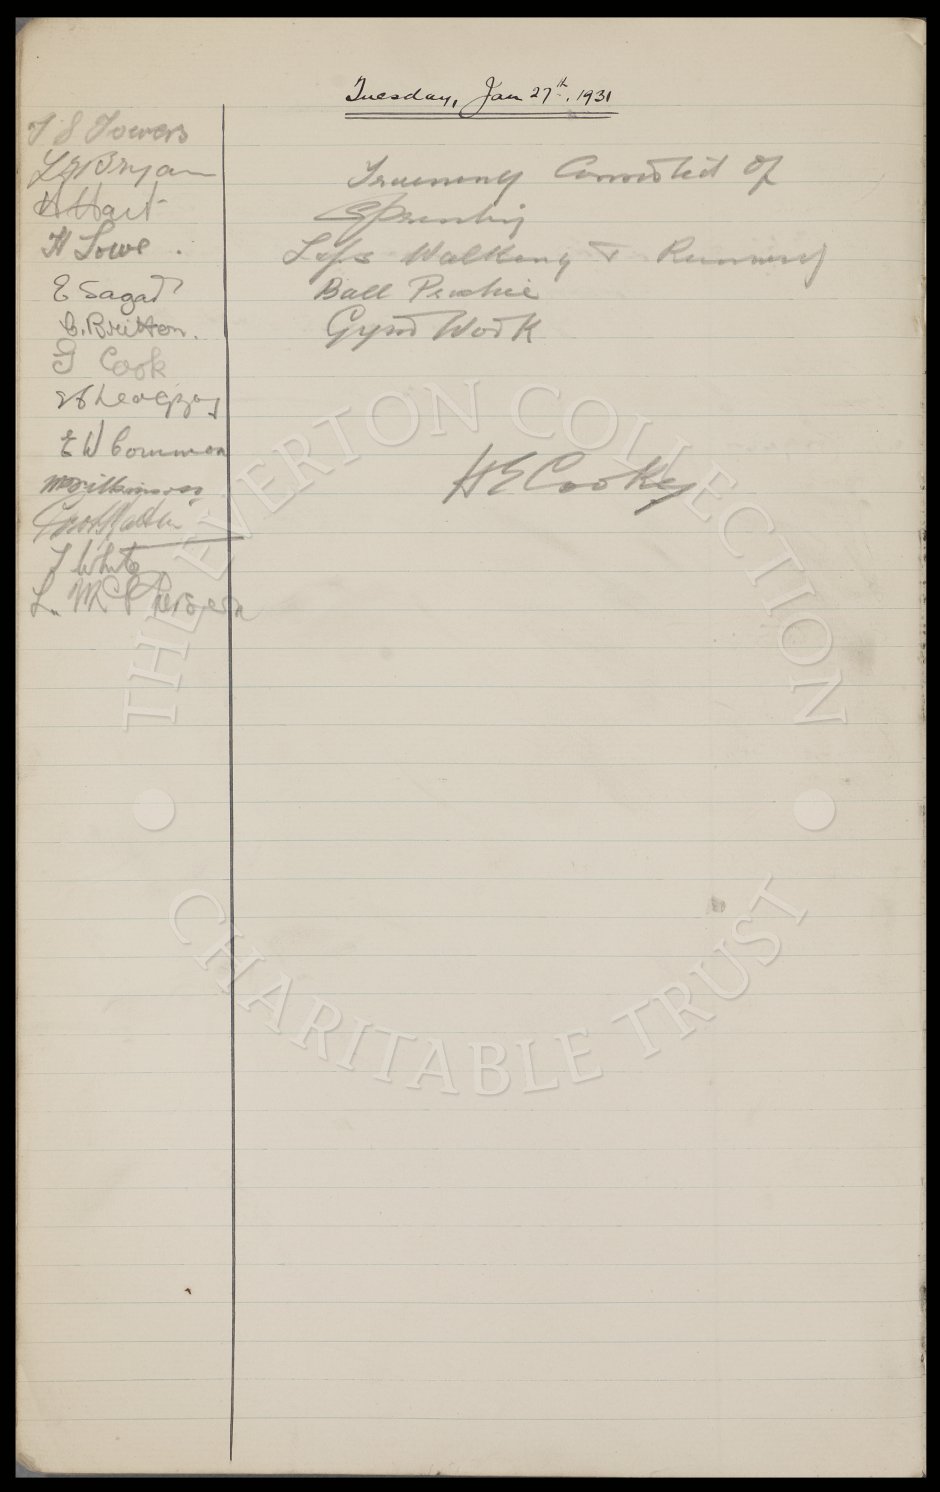 Tuesday, Jan 27th. 1931
T S Towers
L G Bryan
H Hart
H Lowe.
E Sagar
C. Britton.
G Cook
E W Common
M Wilkinson
T White
L. McPherson
Training Consisted of
Sprinting
Laps Walking & Running
Ball Practice
Gym Work
H E Cooke
THE EVERTON COLLECTION
CHARITABLE TRUST